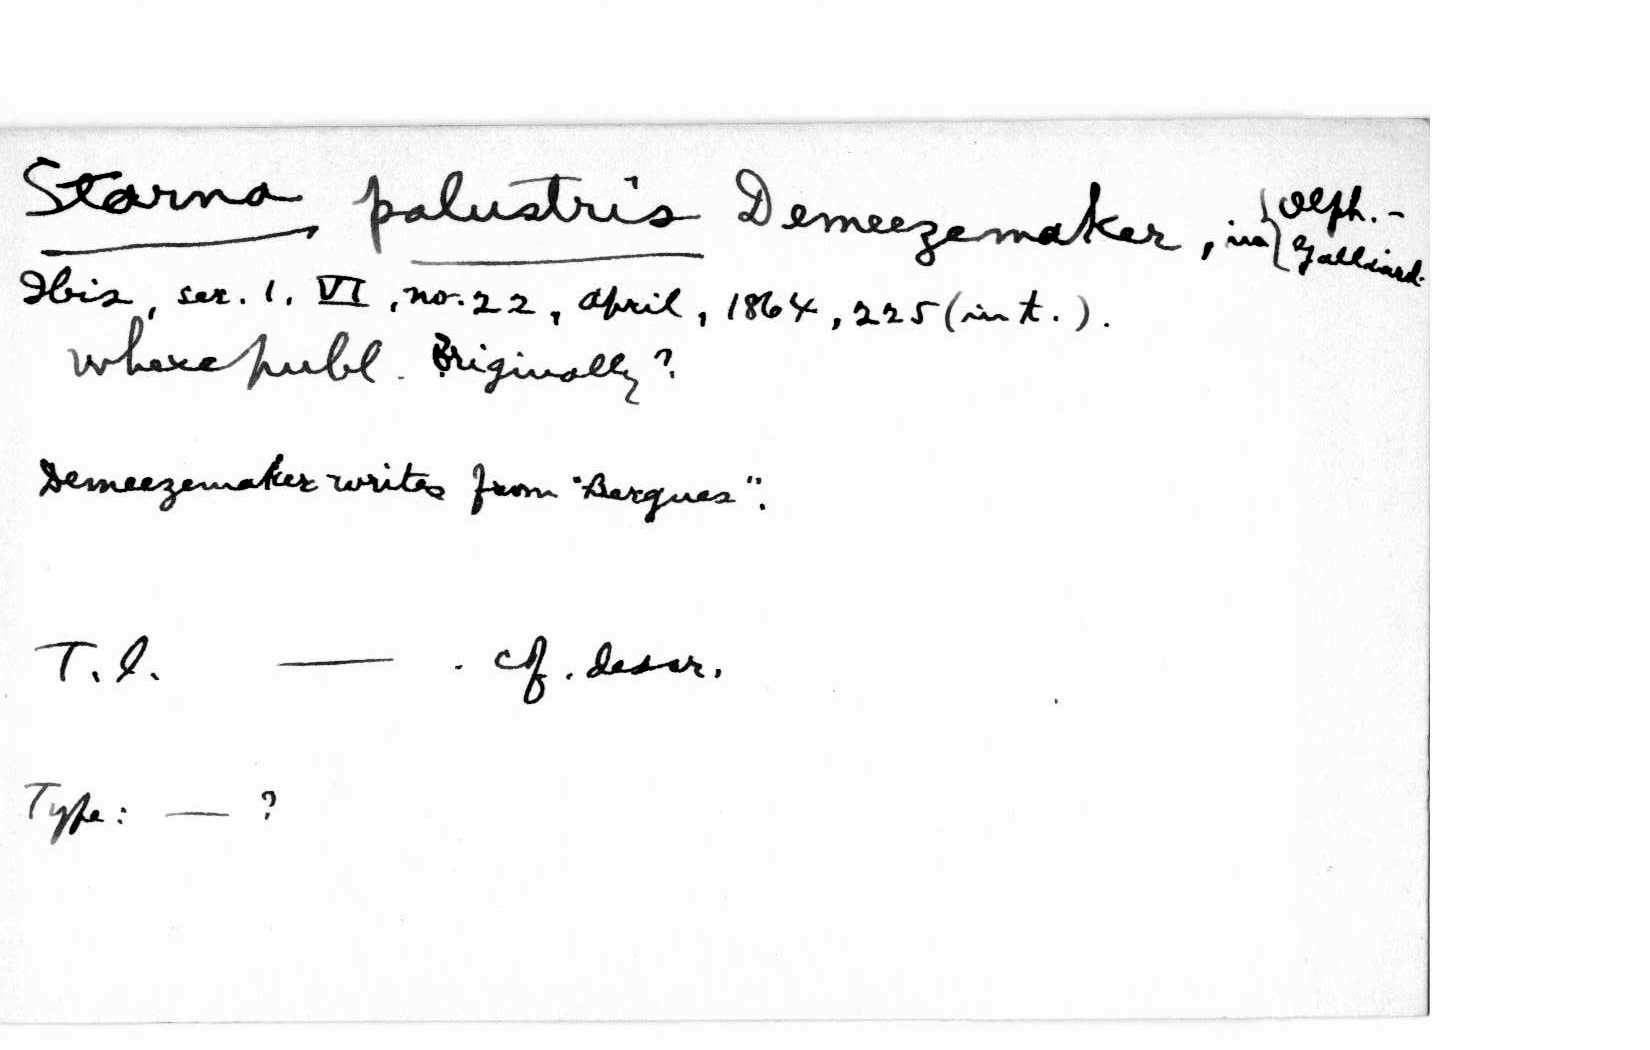 Starna palustris Demeezemaker, in {Olph.-
Galliard.
Ibis, ser. 1, VI, no. 22, April, 1864, 225 (in t.).
Where publ. originally?
Demeezemaker writes from "Bergues".
T.l. — . cf. descr.
Type: — ?